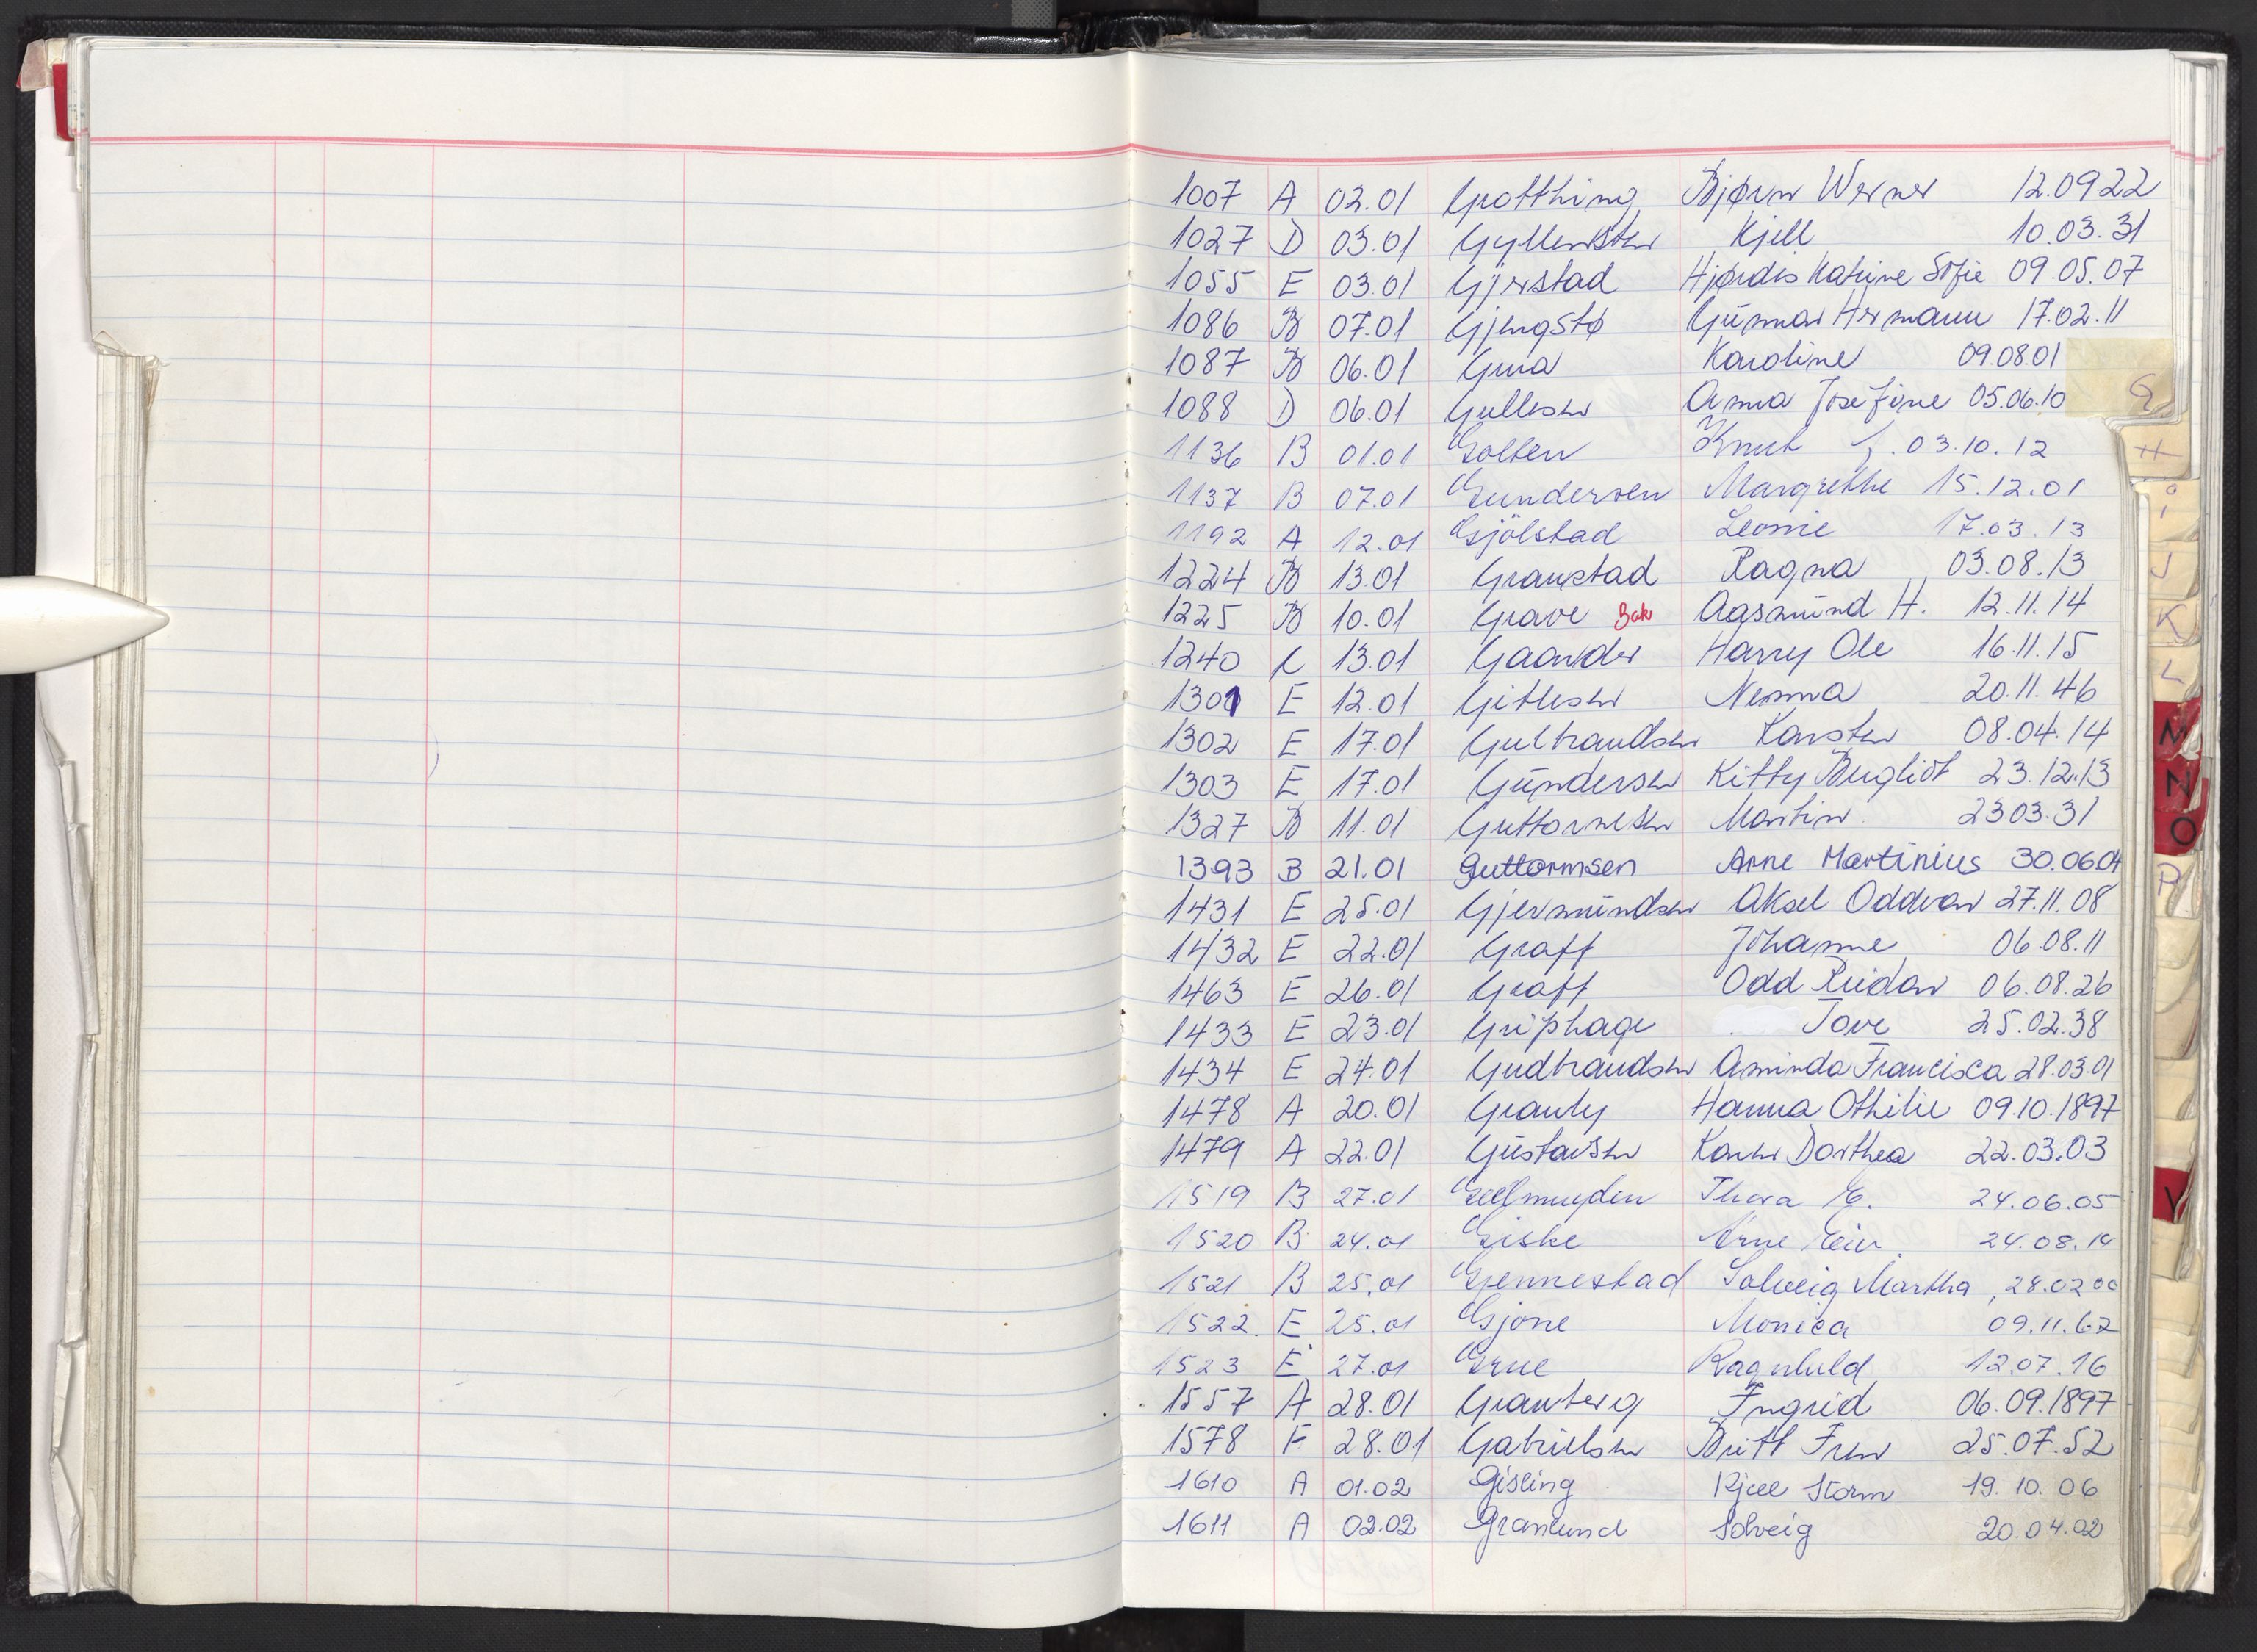 1007 A 02.01 Grotthing Bjørn Werner 12.09 22
1027 D 03.01 Gyllensten Kjell 10.03.31
1055 E 03.01 Gjerstad Hjørdis Katrine Sofie 09.05.07
1086 B 07.01 Gjengstø Gunnar Hermann 17.02.11
1087 B 06.01 Karoline 09.08.01
1088 D 06.01 Gullesen Anna Josefine 05.06.10
G
1136 B 01.01 Golten Knut 03.10.12
H
1137 B 07.01 Gundersen Margrethe 15.12.01
I
1192 A 12.01 Gjölstad Leonie 17.03.13
1224 B 13.01 Granstad Ragna 03.08.13
J
1225 B 10.01 Grave Bak Aasmund H. 12.11.14
K
1240 C 13.01 Gaarder Harry Ole 16.11.15
L
1301 E 12.01 Gitlesen Nenna 20.11.46
1302 E 17.01 Gulbrandsen Karsten 08.04.14
M
1303 E 17.01 Gundersen Kitty Bergliot 23.12.13
N
1327 B 11.01 Guttormsen Martin 23 03.31
O
1393 B 21.01 Guttormsen Arne Martinius 30.06.04
P
1431 E 25.01 Gjermundsen Aksel Oddvar 27.11.08
1432 E 22.01 Graff Johanne 06.08.11
1463 E 26.01 Graff Odd Reidar 06.08.26
1433 E 23.01 Griphage Tove 25.02.38
1434 E 24.01 Gudbrandsen Aminda Francisca 28.03.01
1478 A 20.01 Granly Hanna Othilie 09.10.1897
1479 A 22.01 Gustavsen Karen Dorthea 22.03.03
1519 B 27.01 Geelmuyden Thora E. 24.06.05
V
1520 B 24.01 Giske Arne Geir 24.08.14
1521 B 25.01 Gjennestad Solveig Martha, 28.02 00
1522. E 25.01 Gjone Monica 09.11.62
1523 E 27.01 Grue Ragnhild 12.07.16
1557 A 28.01 Granberg Ingrid 06.09.1897
1578 E 28.01 Gabrielsen Britt Iren 25.07.52
1610 A 01.02 Gisling Kjell Storm 19.10.06
1611 A 02.02 Granlund Solveig 20.04.02